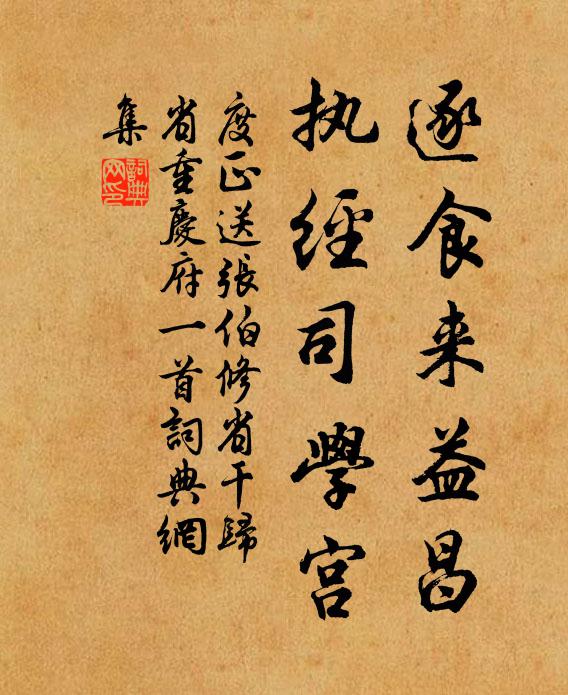 逐食来益昌
执經司學宫
度正送張伯修省干歸
省重慶府一首詞典網
集
詞典网印